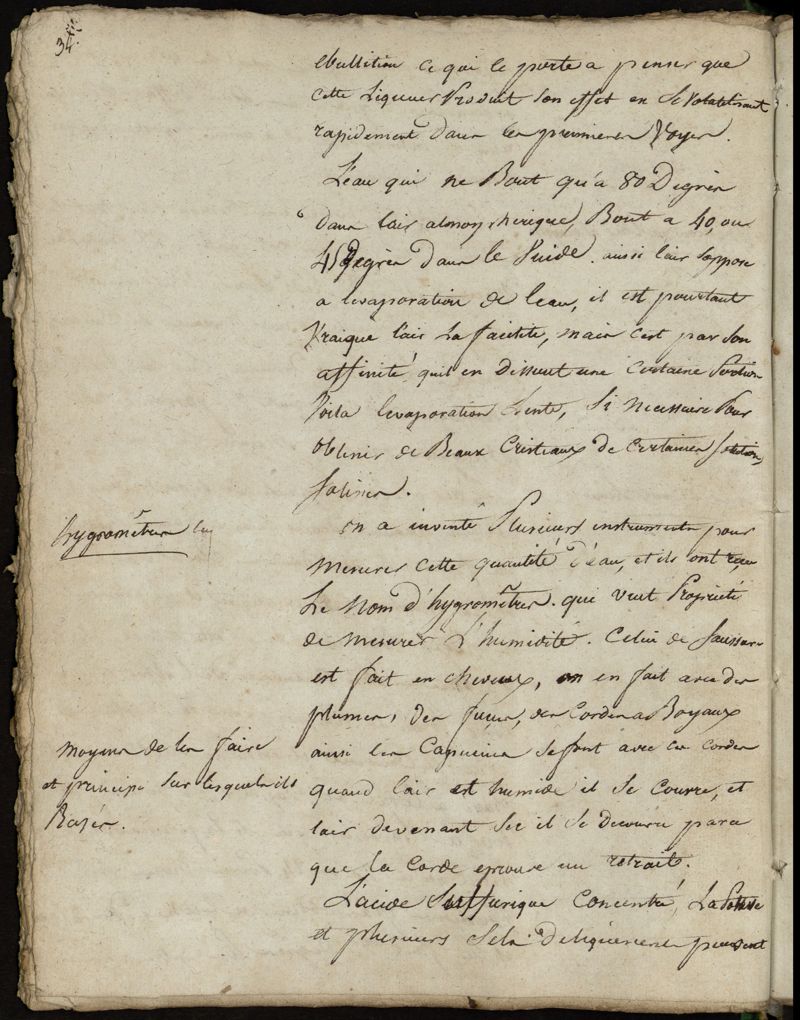 34.
ebullition ce qui le porte a penser que
cette Liqueur Produit son effet en se Volatilisant
rapidement dans les premieres Voyes.
L'eau qui ne Bout qu'a 80 Degrés
dans l'air atmospherique, Bout a 40, ou
45 Degrés dans le Vuide. ainsi l'air s'oppose
a levaporation de leau, il est pourtant
Vrai que l'air La facilite, mais c'est par son
affinité, quil en Dissout une certaine Portion
Voila levaporation Lente, Si necessaire Pour
obtenir de Beaux Cristeaux de Certaines
salines.
hygrométres
on a inventé Plusieurs instruments pour
mesurer cette quantité d'eau, et ils ont reçu
Le Nom d'hygrométres. qui veut Propriété
de mesurer L'humidité. Celui de Saussure
est fait en cheveux, on en fait avec des
plumes, des , des Cordes a Boyaux
moyens de les faire
et principe sur lesquels ils
Basés.
ainsi les Capucins se font avec ces cordes
quand l'air est humide il se couvre, et
lair devenant sec il se decouvre parce
que la corde eprouve un retrait.
L'acide Sulfurique Concentré, La Potasse
et plusieurs Sels Deliquescens peuvent